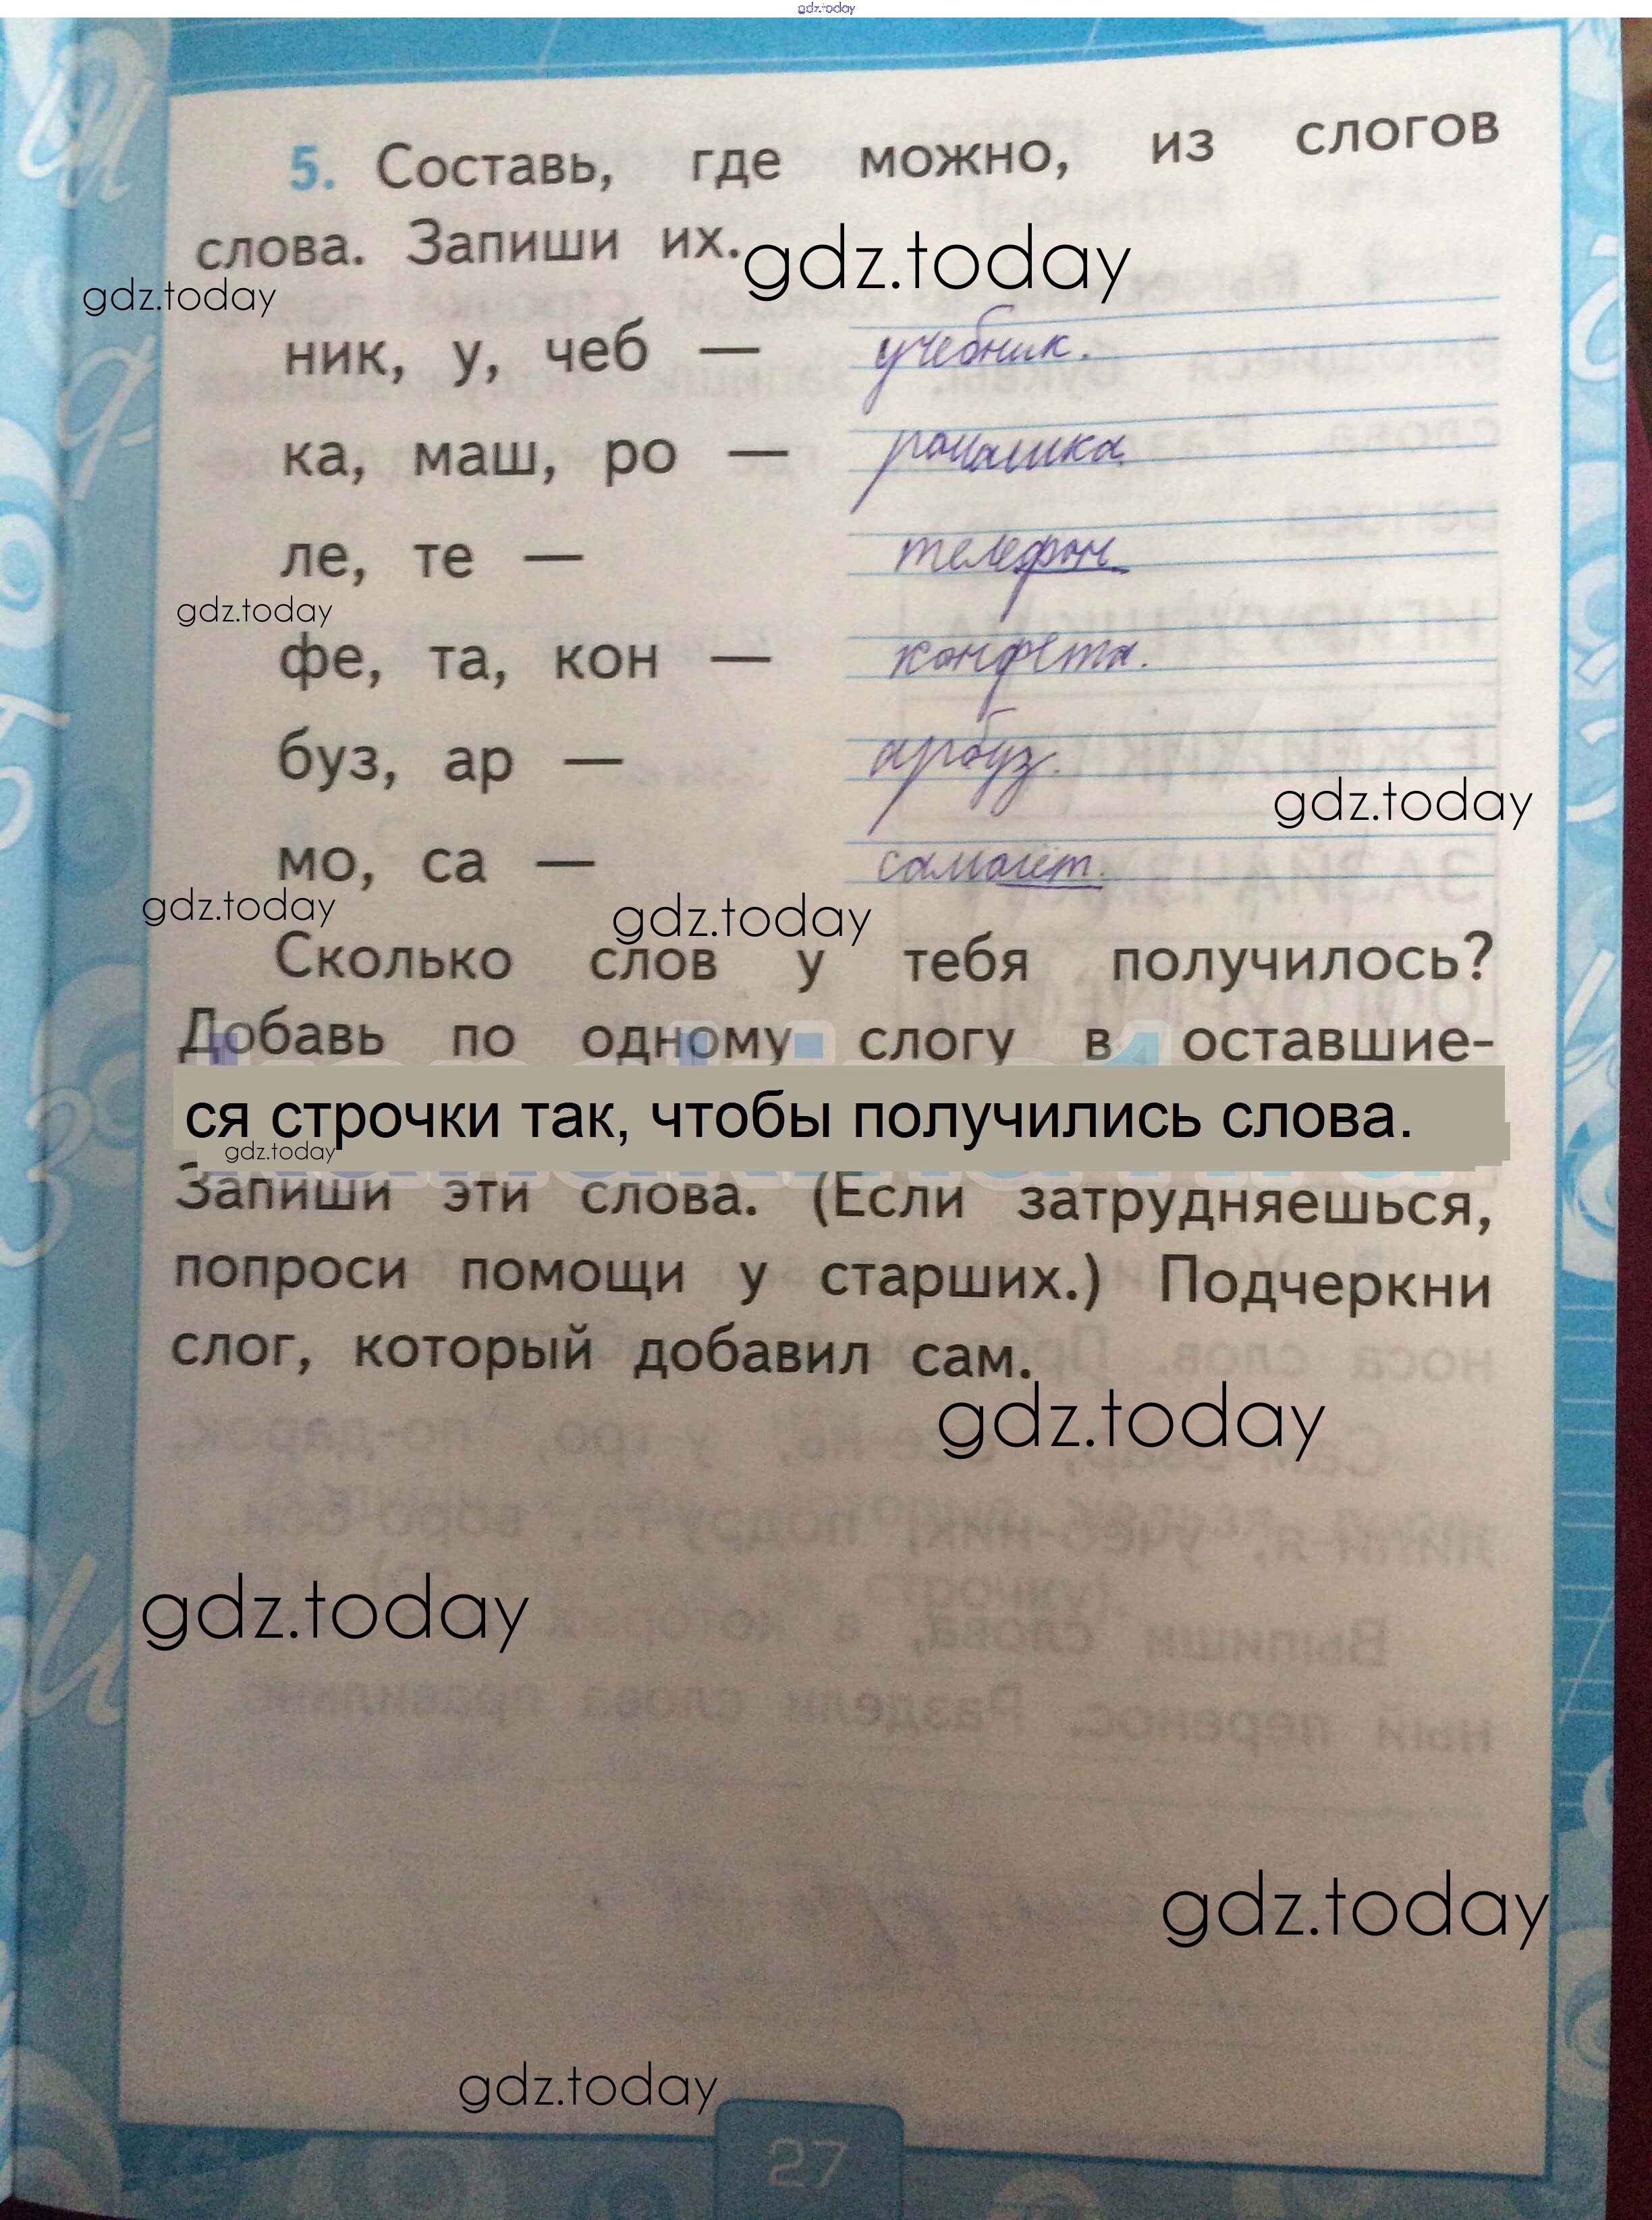 gdz.today
5. Составь, где можно, из слогов
слова. Запиши их.
gdz.today
gdz.today
ник, у, чеб — учебник.
ка, маш, ро — ромашка
ле, те — телефон
gdz.today
фе, та, кон — конфета.
буз, ар — арбуз.
gdz.today
мо, са — самолет.
gdz.today
gdz.today
Сколько слов у тебя получилось?
Добавь по одному слогу в оставшие-
ся строчки так, чтобы получились слова.
gdz.today
Запиши эти слова. (Если затрудняешься,
попроси помощи у старших.) Подчеркни
слог, который добавил сам.
gdz.today
gdz.today
gdz.today
gdz.today
27